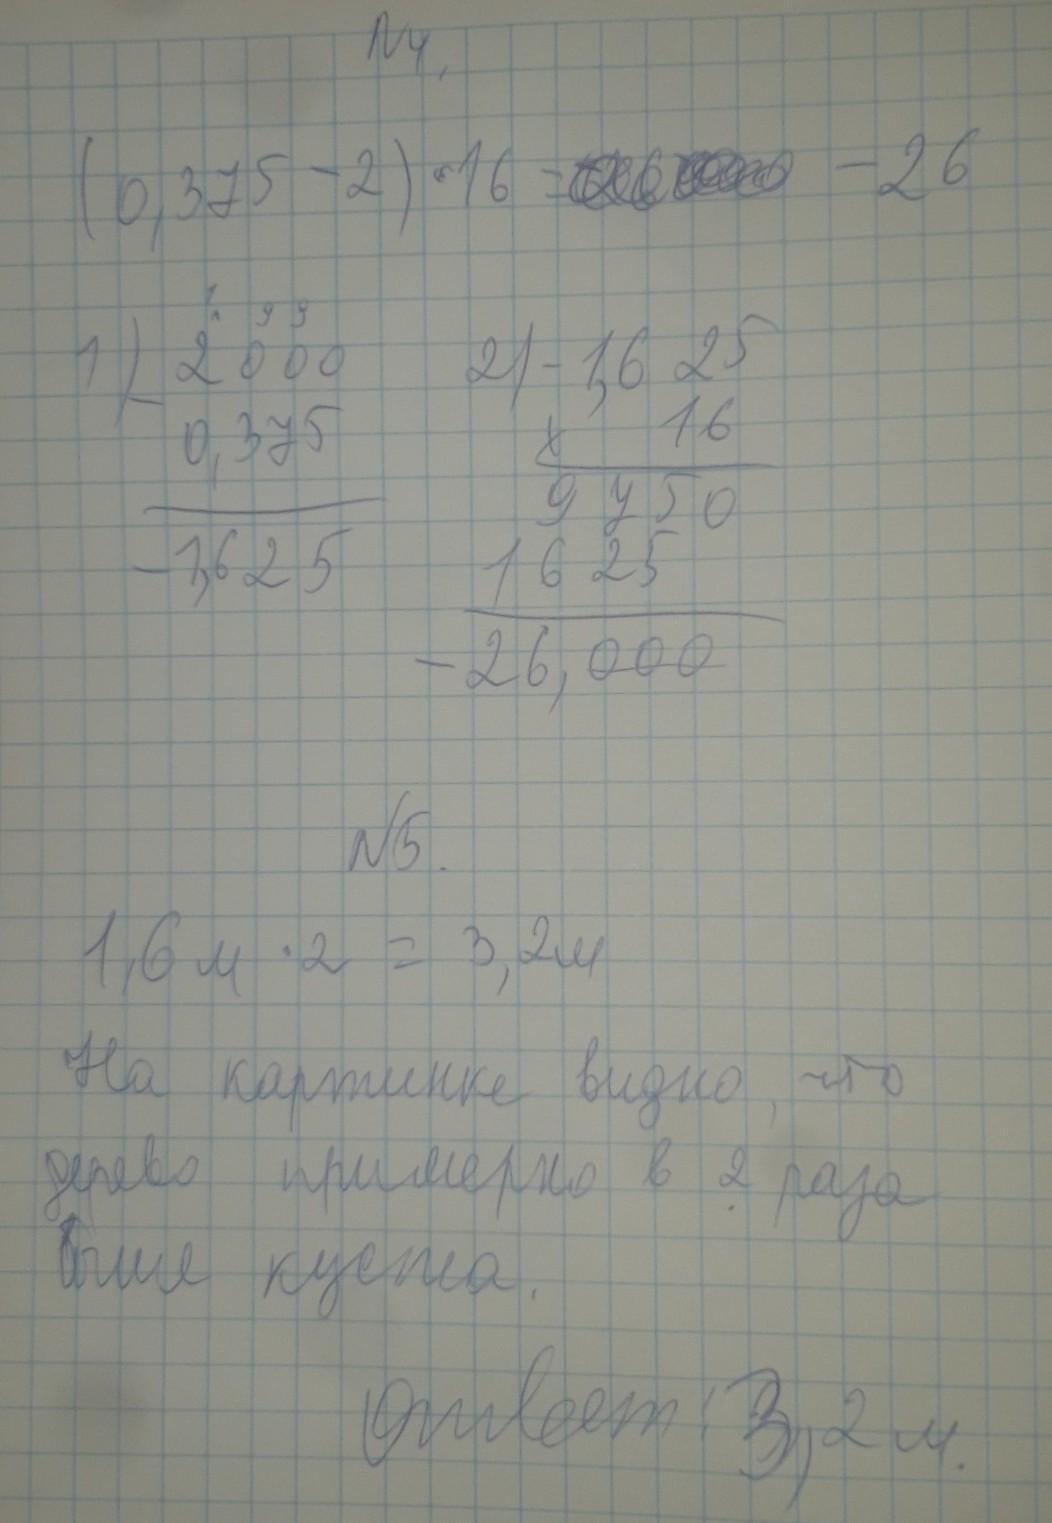 N4.
(0,375 - 2) · 16 = - 26
1) 2000
0,375
-1,625
2) -1,625
x 16
9750
1625
-26,000
N5.
1,6 м · 2 = 3,2 м
На картинке видно, что
дерево примерно в 2 раза
выше куста.
Ответ: 3,2 м.